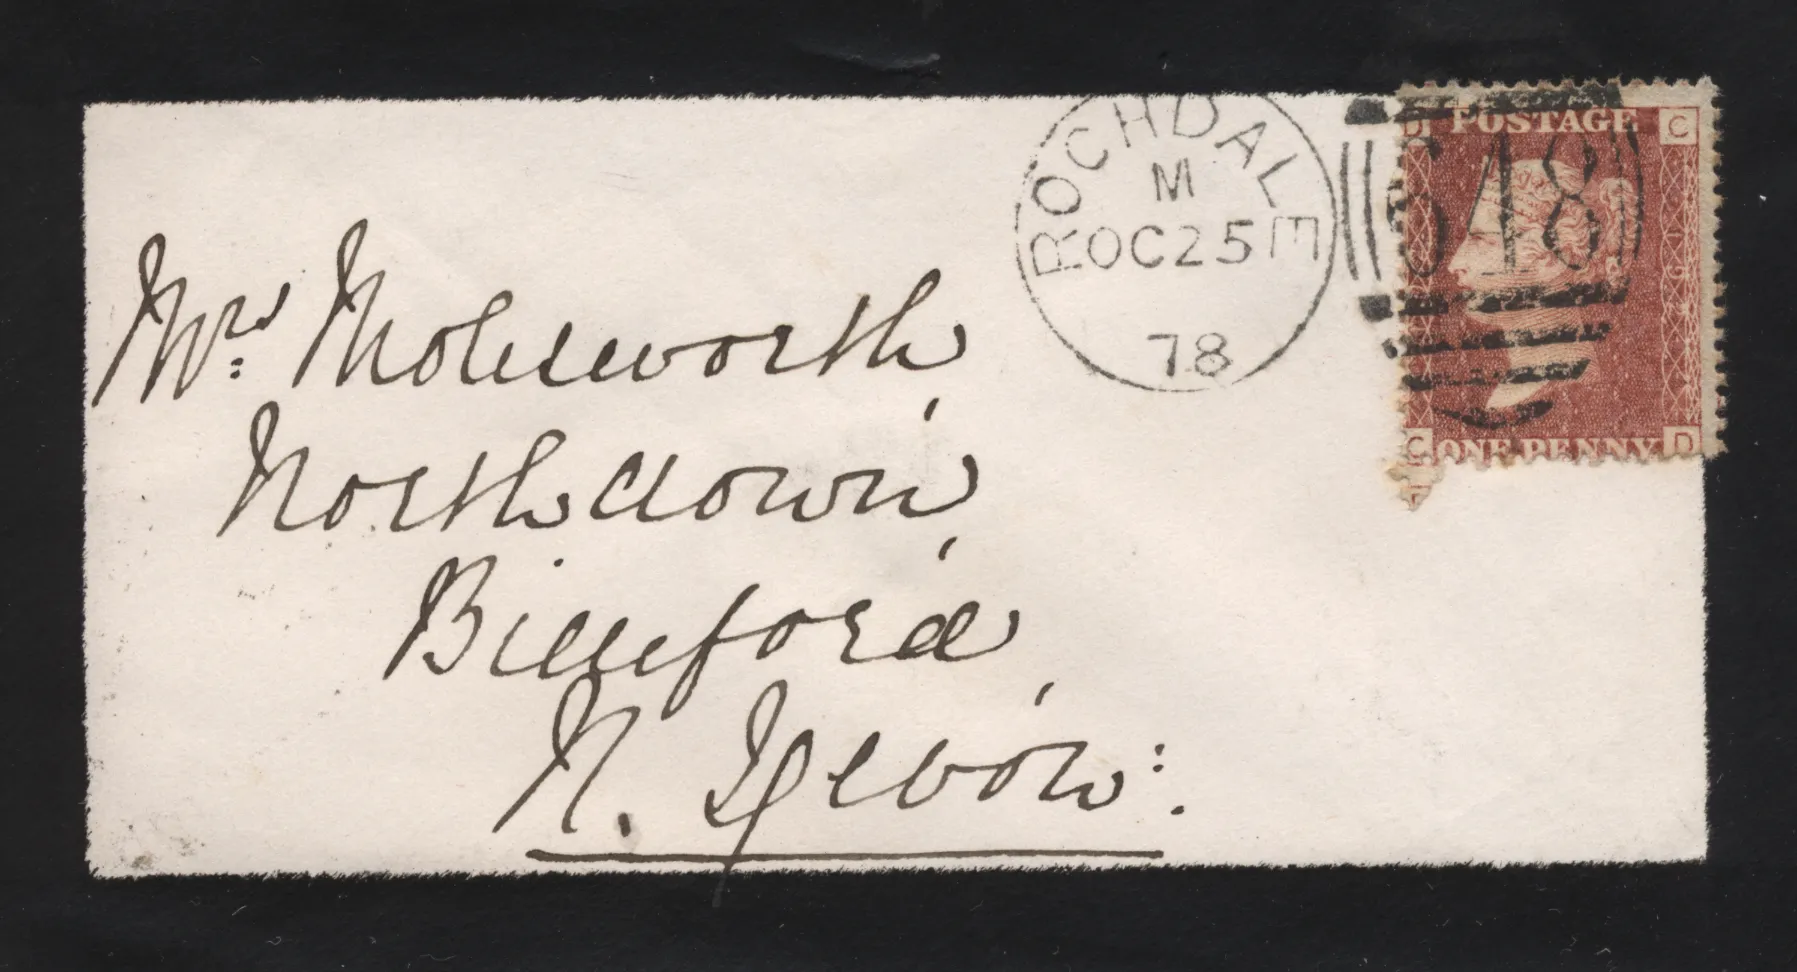 ROCHDALE
M
OC25
78
648
D POSTAGE C
C ONE PENNY D
Mrs: Molesworth,
Northdown,
Bideford,
N. Devon:.